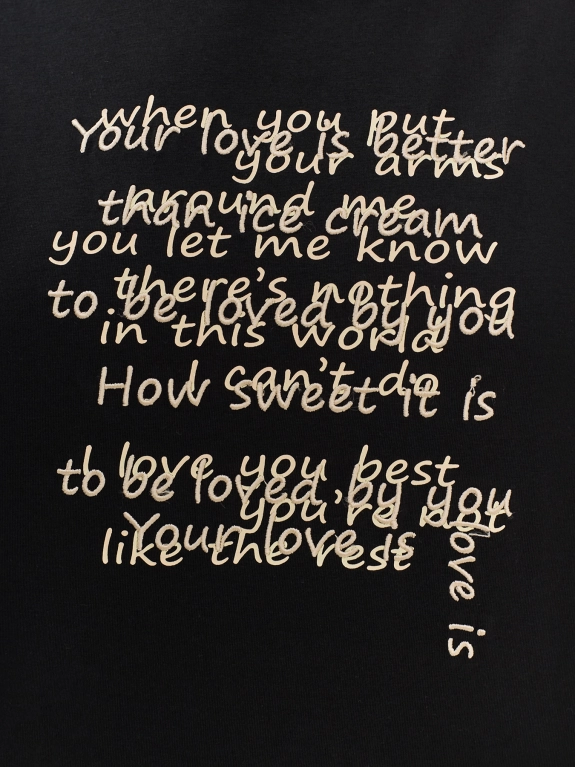 when you put
Your love is better
your arms
around me
than ice cream
you let me know
there's nothing
to be loved by you
in this world
I can't do
How sweet it is
I love you best
to be loved by you
you're not
Your love is
like the rest
love is